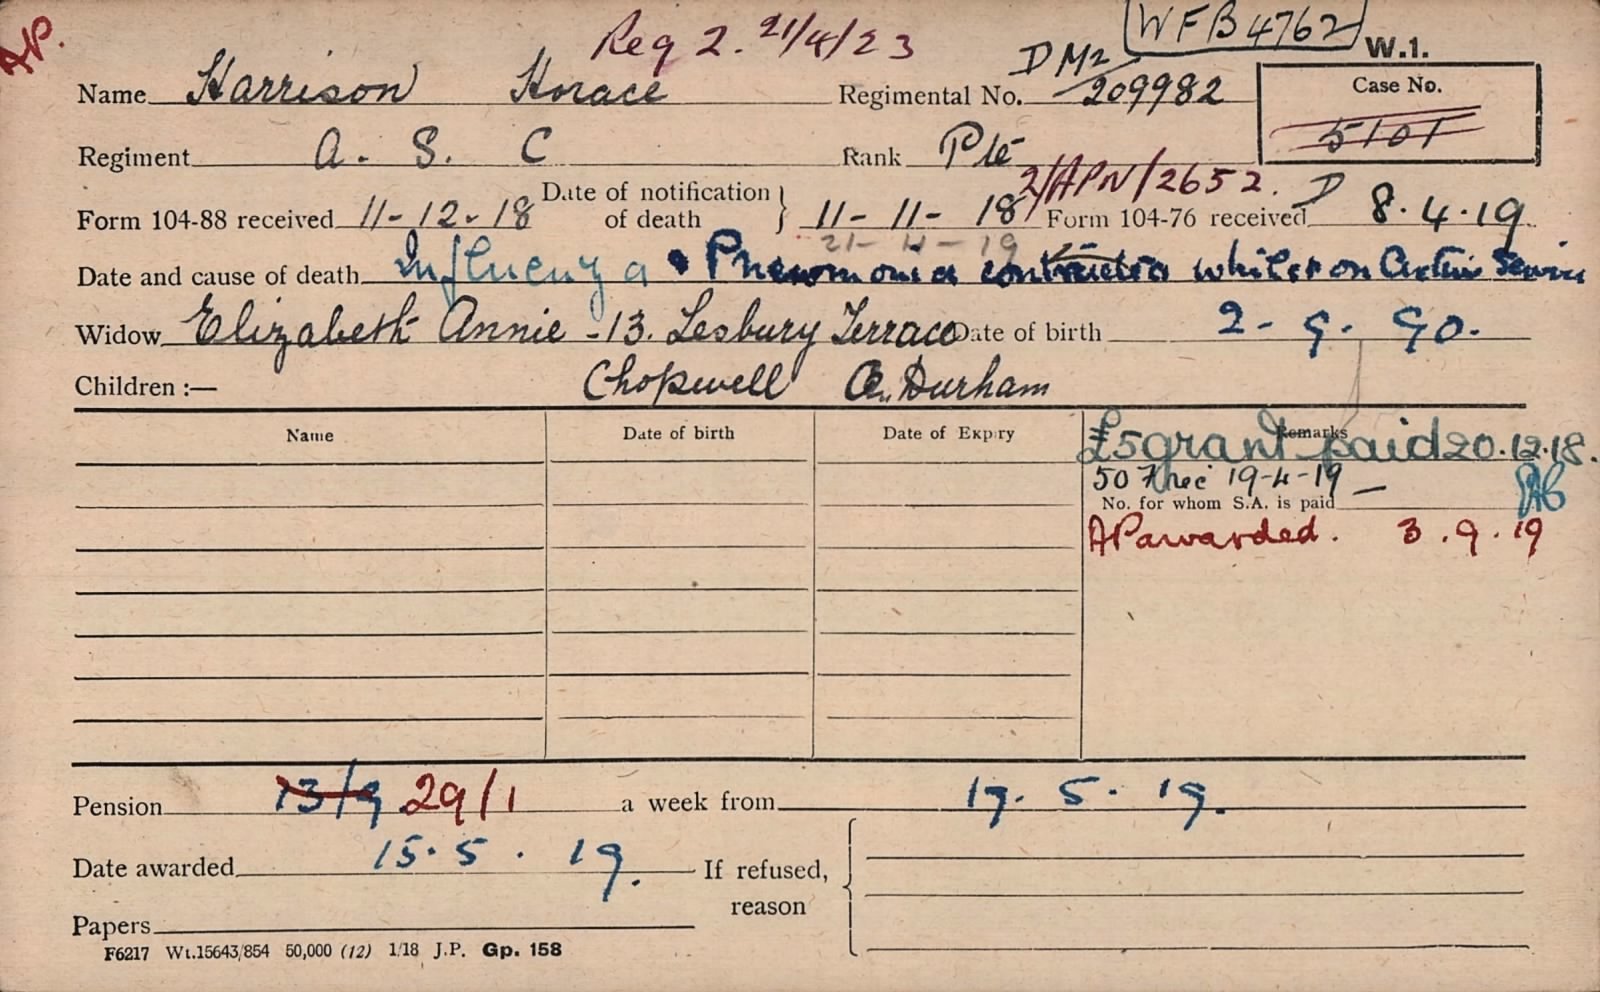 AP.
Reg 2. 21/4/23
WFB 4762
W.1.
Name Harrison Horace
Regimental No. DM2/209982
Case No.
5101
Regiment A. S. C
Rank Pte
2/APW/2652.
Form 104-88 received 11-12-18
Date of notification of death } 11-11-18
Form 104-76 received D 8.4.19
21-4-19
Date and cause of death Influenza & Pneumonia contracted whilst on Active Service
Widow Elizabeth Annie - 13. Lesbury Terrace
Date of birth 2-9-90.
Children :—
Chopwell Co. Durham
Name
Date of birth
Date of Expiry
Remarks
£5 grant paid 20.12.18.
50 rec 19-4-19
No. for whom S.A. is paid —
AP awarded. 3.9.19
Pension 13/9 29/1 a week from 19.5.19.
Date awarded 15.5.19.
If refused, reason
Papers
F6217 Wt.15643/854 50,000 (12) 1/18 J.P. Gp. 158